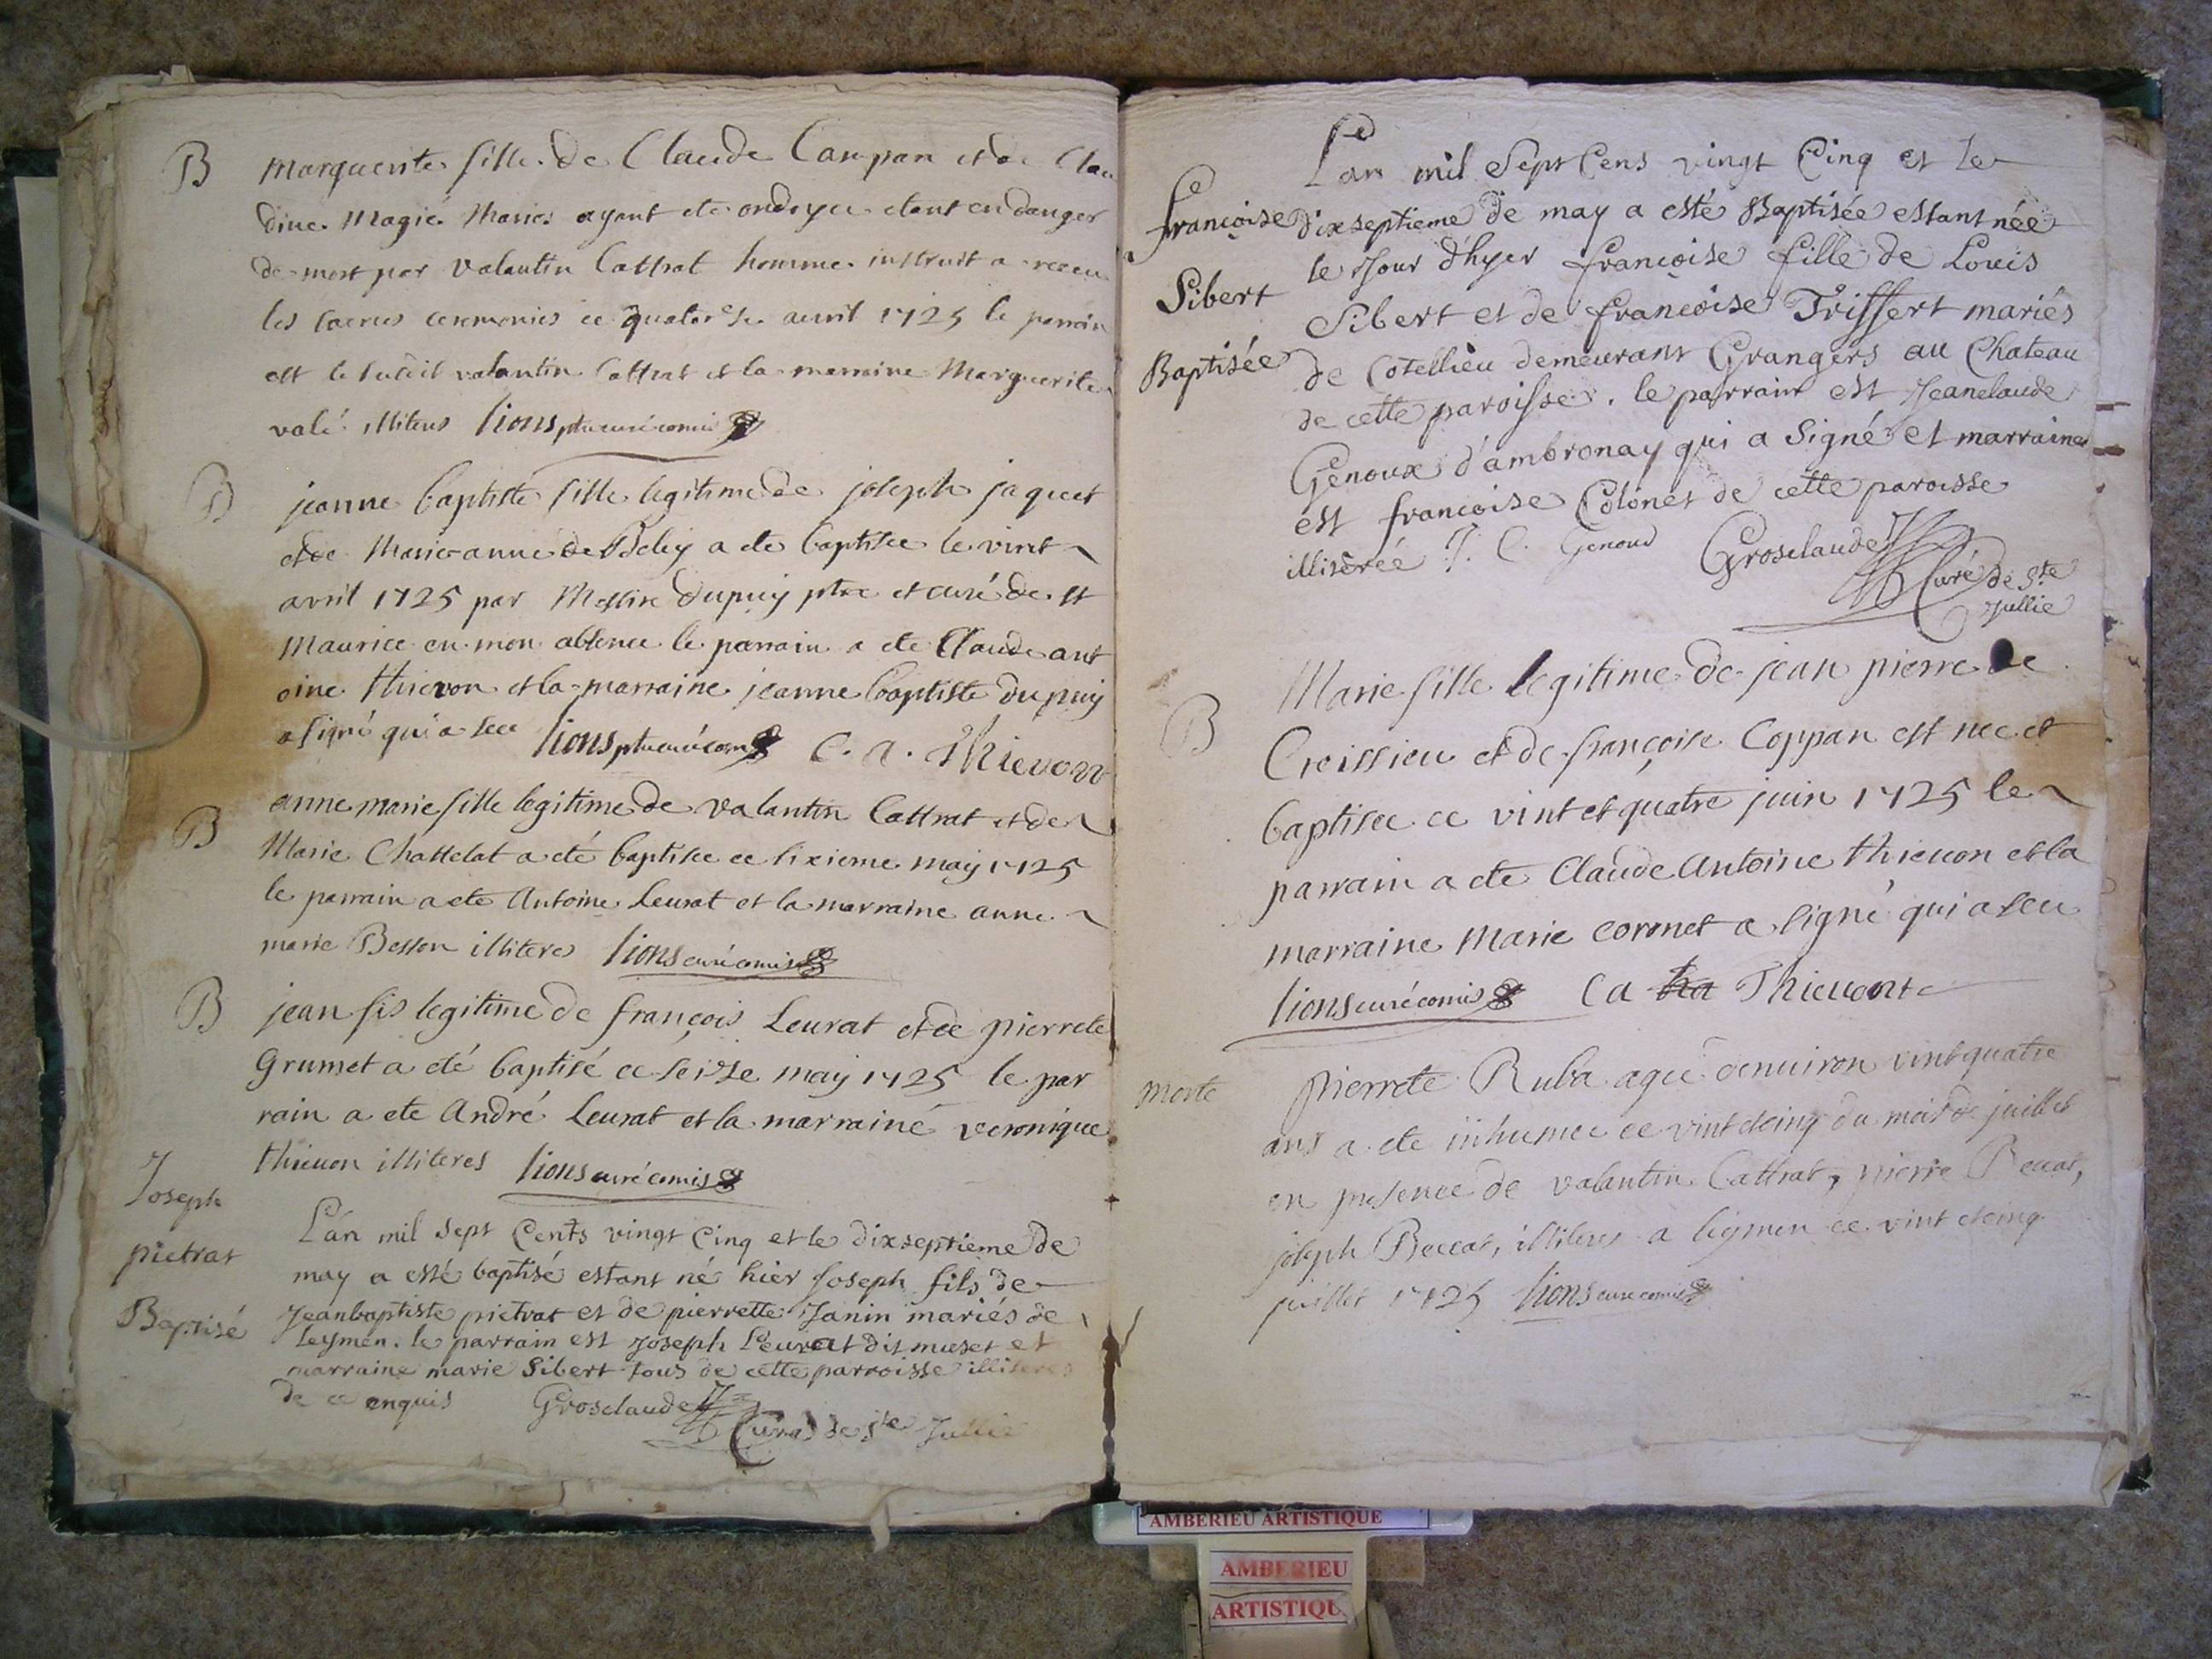 B
marguerite fille de Claude Campan et de Clau
dine Magié Maries ayant ete ondoyee etant en danger
de mort par Valantin Cattrat homme instruit a receu
les sacrees ceremonies ce quatorze avril 1725 le parrain
est le susdit valantin Cattrat et la marraine Marguerite
valé illiteres lions ptre curé comis
B
jeanne baptiste fille legitime de joseph jaquet
et de Marie anne de Beley a ete baptisee le vint
avril 1725 par Messire Dupuy ptre et curé de st
Maurice en mon absence le parrain a ete Claude ant
oine thievon et la marraine jeanne baptiste du puy
a signé qui a sceu lions ptre curé com C. A. Thievon
B
anne marie fille legitime de valantin Cattrat et de
Marie Chattelat a eté baptisee ce sixieme may 1725
le parrain a ete Antoine Leurat et la marraine anne
marie Besson illiteres lions curé comis
B
jean fis legitime de françois Leurat et de pierrete
Grumet a eté baptisé ce seize may 1725 le par
rain a ete André Leurat et la marraine veronique
thieuon illiteres lions curé comis
Joseph
pietrat
Baptisé
L'an mil sept Cents vingt Cinq et le dixseptieme de
may a esté baptisé estant né hier Joseph fils de
Jeanbaptiste pietrat et de pierrette Janin mariés de
Leymen. le parrain est Joseph Leurat dit muset et
marraine marie Sibert tous de cette parroisse illiteres
de ce enquis Grosclaude
Curé de Ste Jullie
Françoise
Sibert
Baptisée
L'an mil Sept Cens vingt Cinq et le
dixseptieme de may a esté Baptisée estant née
le Jour d'hyer françoise fille de Louis
Sibert et de françoise Triffert mariés
de Cotellieu demeurant Grangers au Chateau
de cette paroisse. le parrain est Jeanclaude
Genoux d'ambronay qui a Signé et marraine
est francoise Colonet de cette paroisse
illiterée J. C. Genoud Grosclaude
Curé de Ste
Jullie
B
Marie fille legitime de jean pierre de
Croissieu et de françoise Coppan est nee et
baptisee ce vint et quatre juin 1725 le
parrain a ete Claude Antoine thieuon et la
marraine Marie coronet a signé qui a sceu
lions curé comis C a Thieuont
morte
pierrete Ruba agee denuiron vint quatre
ans a ete inhumee ce vint et cinq du mois de juillet
en presence de valantin Cattrat, pierre Beccat,
joseph Beccat, illiteres a leymen ce vint et cinq
juillet 1725 lions curé comis
AMBERIEU ARTISTIQUE
AMBERIEU
ARTISTIQU